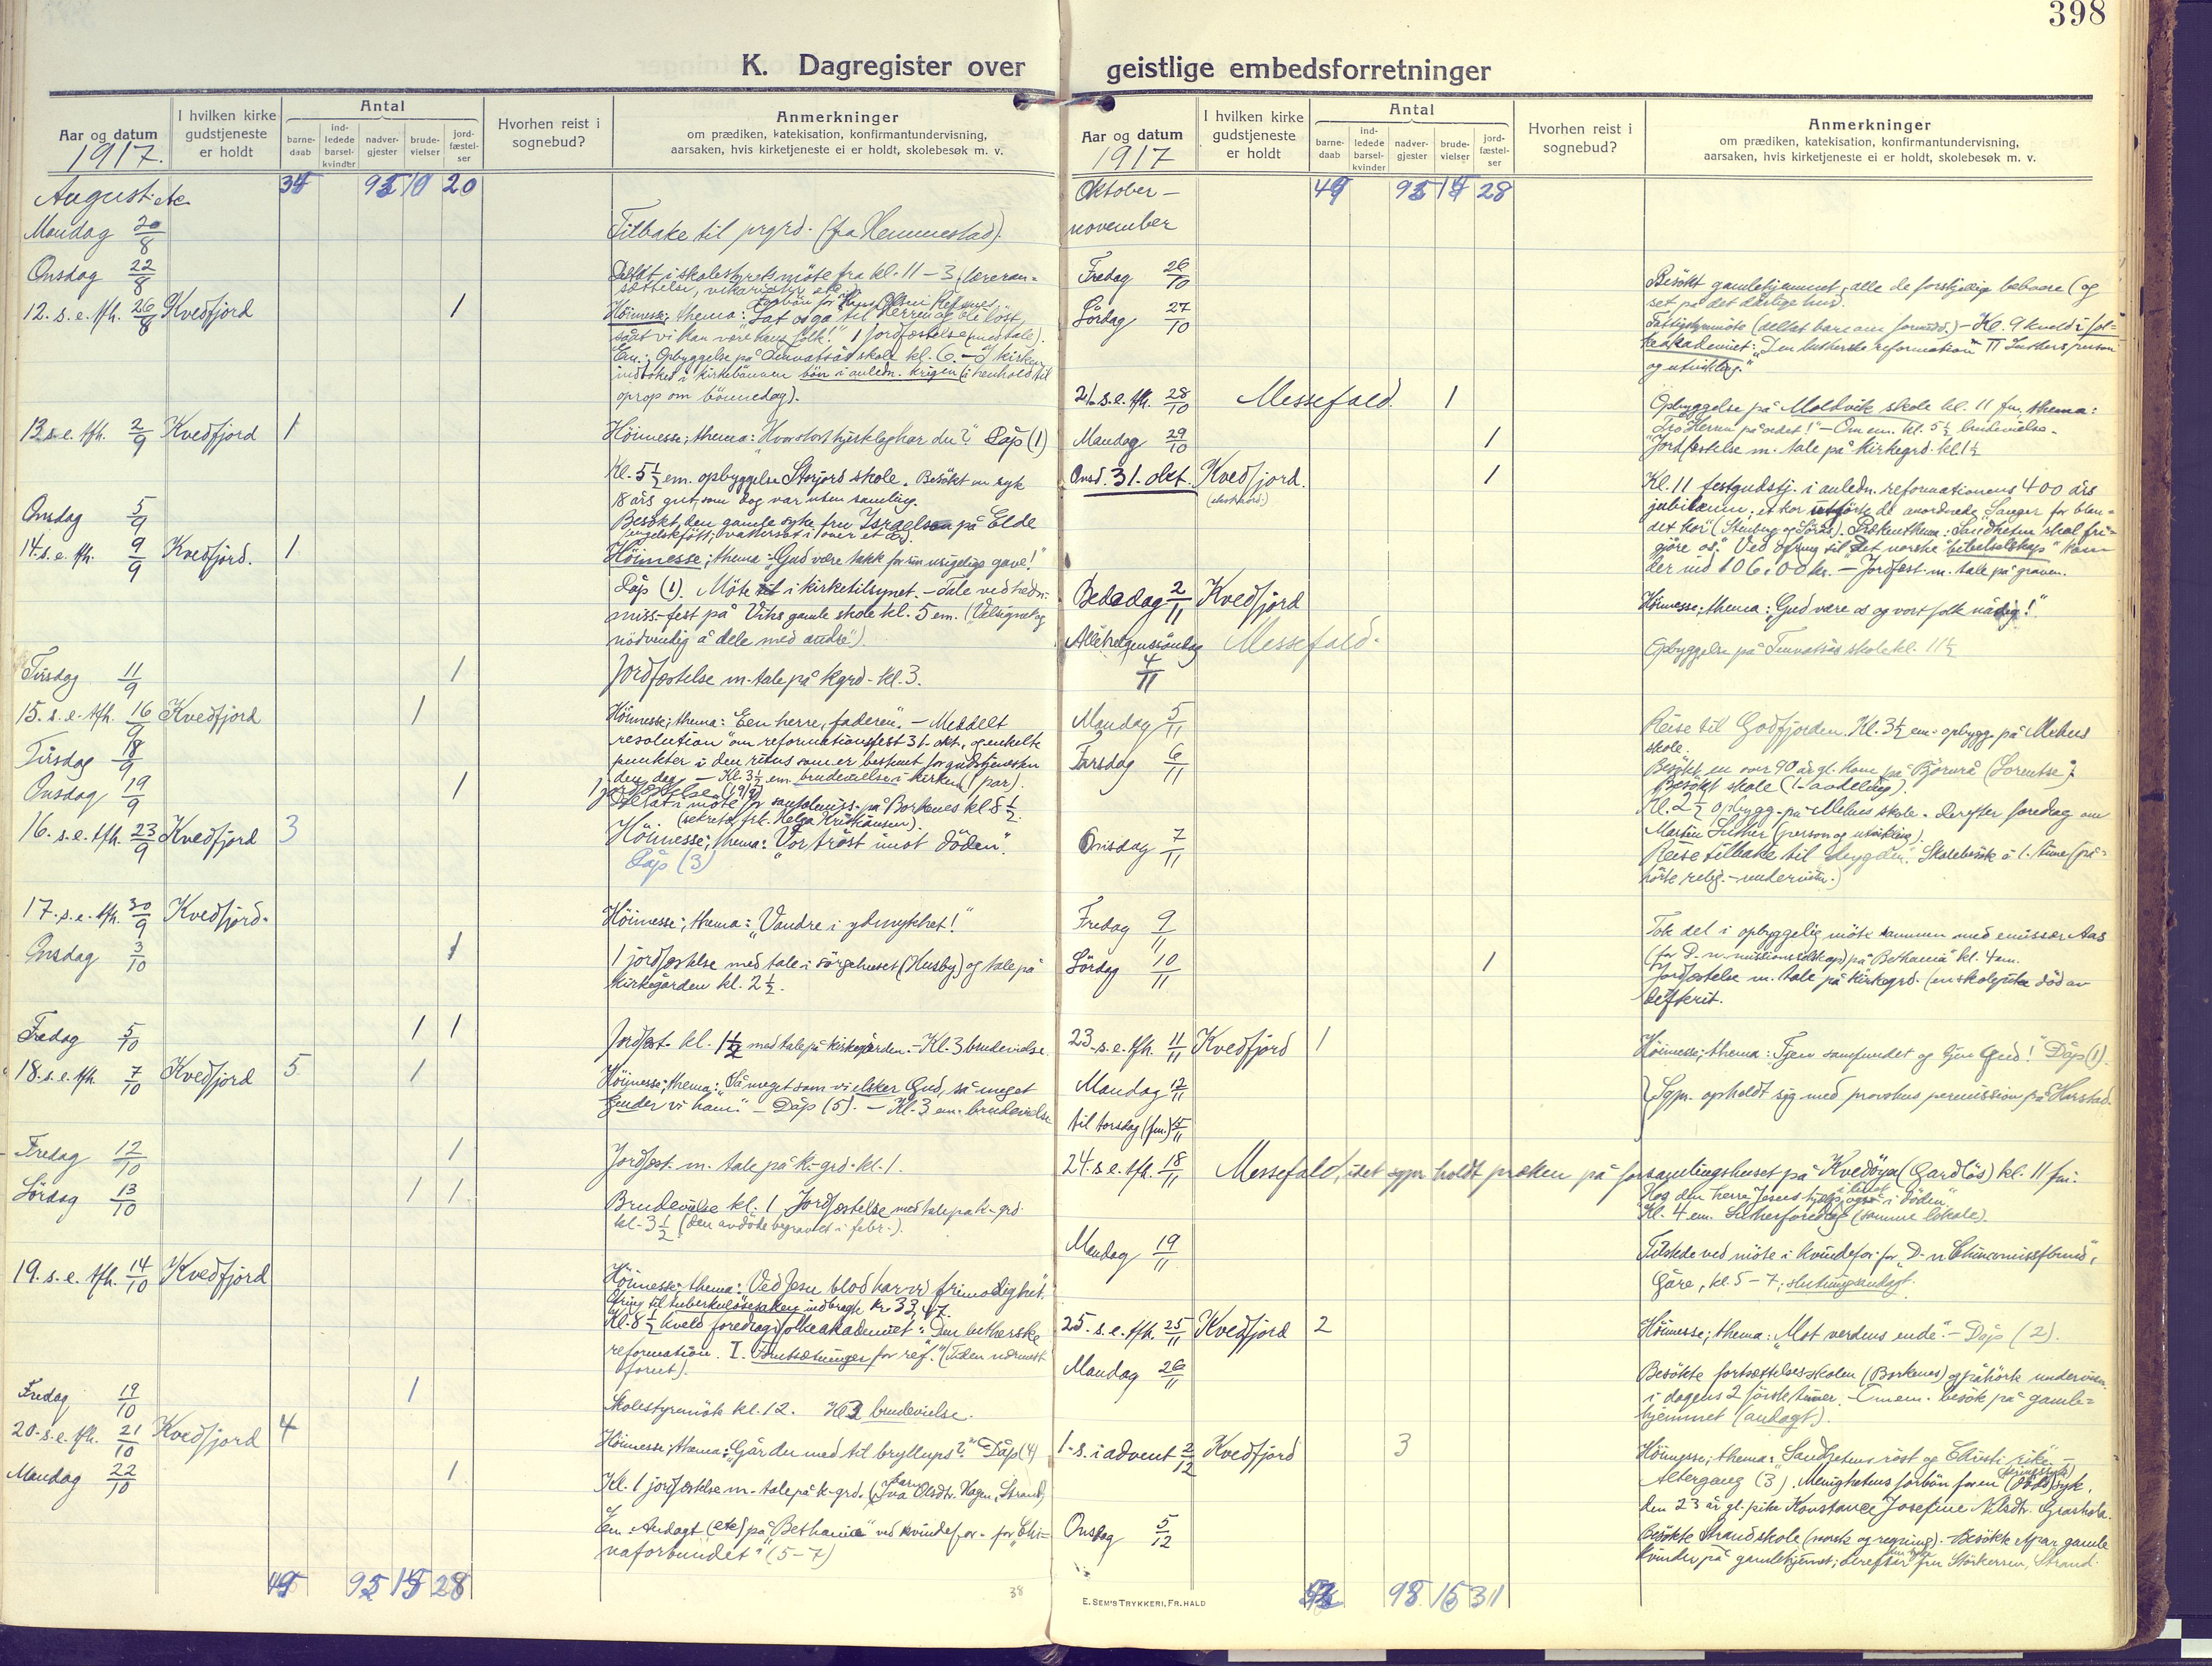 398
K. Dagregister over geistlige embedsforretninger
Aar og datum
1917.
I hvilken kirke gudstjeneste er holdt
Antal
barne-daab
ind-ledede barsel-kvinder
nadver-gjester
brude-vielser
jord-fæstel-ser
Hvorhen reist i sognebud?
Anmerkninger
om prædiken, katekisation, konfirmantundervisning,
aarsaken, hvis kirketjeneste ei er holdt, skolebesøk m. v.
August
20
Mandag 20/8 Tilbake til prgrd. (fra Hemmestad).
Onsdag 22/8 Deltat i skolestyrets møte fra kl. 11 – 3 (læreran=
sættelse,
12. s. e. tfh. 26/8 Kvedfjord 1
Høimesse; thema: "Lat os gå til Herren
såat vi kan være hans folk!" 1 jordfæstelse (med tale).
Em.: Opbyggelse på skole kl. 6. – I kirken
bøn i anledn. krigen (i henhold til
oprop om bønnedag).
13. s. e. tfh. 2/9 Kvedfjord 1 Høimesse; thema: "Hvor stort hjertelag har du?" Dåp (1)
Kl. 5 1/2 em. opbyggelse Storjord skole. Besøkt en syk
18 års gut, som dog var uten samling.
Onsdag 5/9 Besøkt den gamle syke fru Israelsen på Elde
14. s. e. tfh. 9/9 Kvedfjord. 1 Høimesse; thema: "Gud være takk for sin usigelige gave!"
Dåp (1). Møte i kirketilsynet. – Tale ved hedn.
miss-fest på Viks gamle skole kl. 5 em. ("Velsignet og
nødvendig å dele med andre").
Tirsdag 11/9 1 Jordfæstelse m. tale på kgrd. kl. 3.
15. s. e. tfh. 16/9 Kvedfjord 1 Høimesse; thema: "Een herre, faderen". – Meddelt
resolution om reformationsfest 31. okt., og enkelte
punkter i den ritus som er bestemt for gudstjenesten
den dag. – Kl. 3 1/2 em. brudevielse i kirken (1 par).
Tirsdag 18/9
Onsdag 19/9 1 1 jordfæstelse (19/9)
Deltat i møte for santalmiss. på Borkenes kl 8 1/2.
(sekretær frk. Helga Kristiansen).
16. s. e. tfh. 23/9 Kvedfjord 3 Høimesse; thema: "Vor trøst imot døden".
Dåp (3)
17. s. e. tfh. 30/9 Kvedfjord. Høimesse; thema: "Vandre i ydmykhet!"
Onsdag 3/10 1 1 jordfæstelse med tale i sørgehuset (Husby) og tale på
kirkegården kl. 2 1/2.
Fredag 5/10 1 1 Jordfæst. kl. 1 1/2 med tale på kirkegården. – Kl. 3 brudevielse
18. s. e. tfh. 7/10 Kvedfjord 5 1 Høimesse; thema: "Så meget som vi elsker Gud, så meget
kjender vi ham." – Dåp (5). – Kl. 3 em. brudevielse
Fredag 12/10 1 Jordfæst. m. tale på k-grd. kl. 1.
Lørdag 13/10 1 1 Brudevielse kl. 1, Jordfæstelse med tale på k-grd.
kl. 3 1/2 (den avdøde begravet i febr.).
19. s. e. tfh. 14/10 Kvedfjord Høimesse; thema: "Ved Jesu blod har vi frimodighet".
Ofring til tuberkulosesaken indbragte kr. 33,47.
Kl. 8 1/2 kveld foredrag i folkeakademiet: "Den lutherske
reformation. I. Forutsetninger for ref." (Tiden nærmest
forut).
Fredag 19/10 1 Skolestyremøte kl. 12. Kl 3 brudevielse.
20. s. e. tfh. 21/10 Kvedfjord 4 Høimesse; thema: "Går du med til bryllups?" – Dåp (4)
Mandag 22/10 1 Kl. 1 jordfæstelse m. tale på k-grd. Olsdtr. Hagen, Strand)
Em. Andagt (etc) på "Bethania" ved kvindefor. for "Chi=
naforbundet" (5–7)
28
38
Aar og datum
1917
I hvilken kirke gudstjeneste er holdt
Antal
barne-daab
ind-ledede barsel-kvinder
nadver-gjester
brude-vielser
jord-fæstel-ser
Hvorhen reist i sognebud?
Anmerkninger
om prædiken, katekisation, konfirmantundervisning,
aarsaken, hvis kirketjeneste ei er holdt, skolebesøk m. v.
Oktober –
november
28
Fredag 26/10 Besøkt gamlehjemmet, alle de forskjellige beboere (og
set på det dårlige hus).
Lørdag 27/10 Fattigstyremøte (deltat bare om formidd.) – Kl. 9 kveld i fol=
keakademiet: "Den lutherske reformation" II Luthers person
og utvikling."
21. s. e. tfh. 28/10 Messefald. 1 Opbyggelse på Moldvik skole kl. 11 fm, thema:
"Tro Herren på ordet!" – Om em. kl. 5 1/2 brudevielse.
Mandag 29/10 1 Jordfæstelse m. tale på kirkegrd. kl. 1 1/2
Onsd. 31. okt. Kvedfjord. 1 Kl. 11 festgudstj. i anledn. reformationens 400 års
jubilæum; et kor utførte de anordnede "Sanger for blan=
det kor" (Stenberg og Sørås). Prækenthema: "Sandheten skal fri=
gjøre os." Ved ofring til "Det norske bibelselskap" kom
der ind 106,00 kr. – Jordfæst. m. tale på graven.
Bededag 2/11 Kvedfjord Høimesse; thema: "Gud være os og vort folk nådig!"
Allehelgenssøndag 4/11 Messefald. Opbyggelse på skole kl. 11 1/2
Mandag 5/11 Reise til Godfjorden. Kl. 3 1/2 em. opbygg. på Melnes
skole.
Tirsdag 6/11 Besøkt en over 90 år gl. kone på Bjørnrå (Lorentse);
Besøkt skole (1. avdeling).
Kl. 2 1/2 opbygg. på Melnes skole. Derefter foredrag om
Martin Luther (person og utvikling).
Onsdag 7/11 Reise tilbake til "bygden". Skolebesøk à 1. time (på=
hørte relig.-undervisn.)
Fredag 9/11 Tok del i opbyggelig møte sammen med emissær Aas
(for D. n. missionsselskap) på "Bethania" kl. 4 em.
Lørdag 10/11 1 Jordfæstelse m. tale på kirkegrd. (en skolepike død av
difterit.
23. s. e. tfh. 11/11 Kvedfjord 1 Høimesse; thema: "Tjen samfundet og tjen Gud!" Dåp (1).
Mandag 12/11
til torsdag (fm.) 15/11 Sgpr. opholdt sig med provstens permission på Harstad.
24. s. e. tfh. 18/11 Messefald, idet sgpr. holdt præken på forsamlingshuset på Kvedøya (Gardløs) kl. 11 fm.
"Hos den herre Jesus hjelp, i livet også i døden"
Kl. 4 em. Lutherforedrag (samme lokale).
Mandag 19/11 Tilstede ved møte i kvindefor. for "D. n. Chinamissforbund",
Gåre, kl. 5 – 7; slutningsandagt.
25. s. e. tfh. 25/11 Kvedfjord 2 Høimesse; thema: "Mot verdens ende". – Dåp (2).
Mandag 26/11 Besøkte fortsættelsesskolen (Borkenes) og påhørte undervisn.
i dagens 2 første timer. – Om em. besøk på gamle=
hjemmet (andagt).
1. s. i advent 2/12 Kvedfjord 3 Høimesse; thema: Sandhetens røst og Kristi rike. –
Altergang (3). Menighetens forbøn for en syk,
den 23 år gl. pike Konstance Josefine Nilsdtr.
Onsdag 5/12 Besøkte Strand skole (norsk og regning). – Besøkte et par gamle
kvinder på gamlehjemmet; derefter fru Størkersen, Strand.
31
E. SEM'S TRYKKERI, FR.HALD